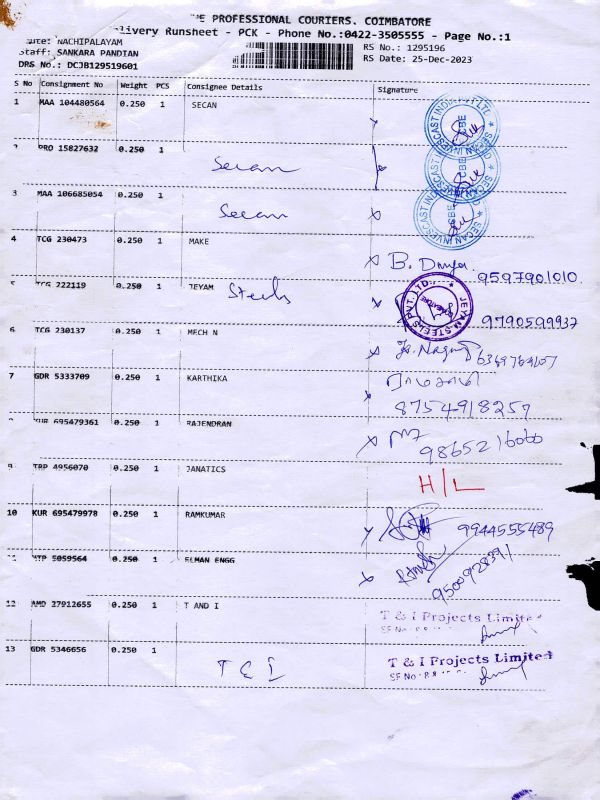 PROFESSIONAL COURIERS. COIMBATORE
Runsheet - PCK - Phone No.:0422-3505555 - Page No.:1
NACHIPALAYAM
RS No.: 1295196
Staff: SANKARA PANDIAN
RS Date: 25-Dec-2023
DRS No.: DCJB129519601
S No Consignment No Weight PCS Consignee Details Signature
1 MAA 104480564 0.250 1 SECAN
PRO 15827632 0.250 1 Secan
3 MAA 106685054 0.250 1 Secan
4 TCG 230473 0.250 1 MAKE B. Divya 9597901010
TCG 222119 0.250 1 JEYAM Steels 9790599937
JEYAM STEELS PVT. LTD.
6 TCG 230137 0.250 1 MECH N
7 GDR 5333709 0.250 1 KARTHIKA
8754918257
KUR 695479361 0.250 1 RAJENDRAN
9. TRP 4956070 0.250 1 JANATICS H/L
10 KUR 695479978 0.250 1 RAMKUMAR 9944555489
5059564 0.250 1 ELMAN ENGG 9500928391
12 AMD 27912655 0.250 1 T AND I T & I Projects Limited
13 GDR 5346656 0.250 1 T & I T & I Projects Limited